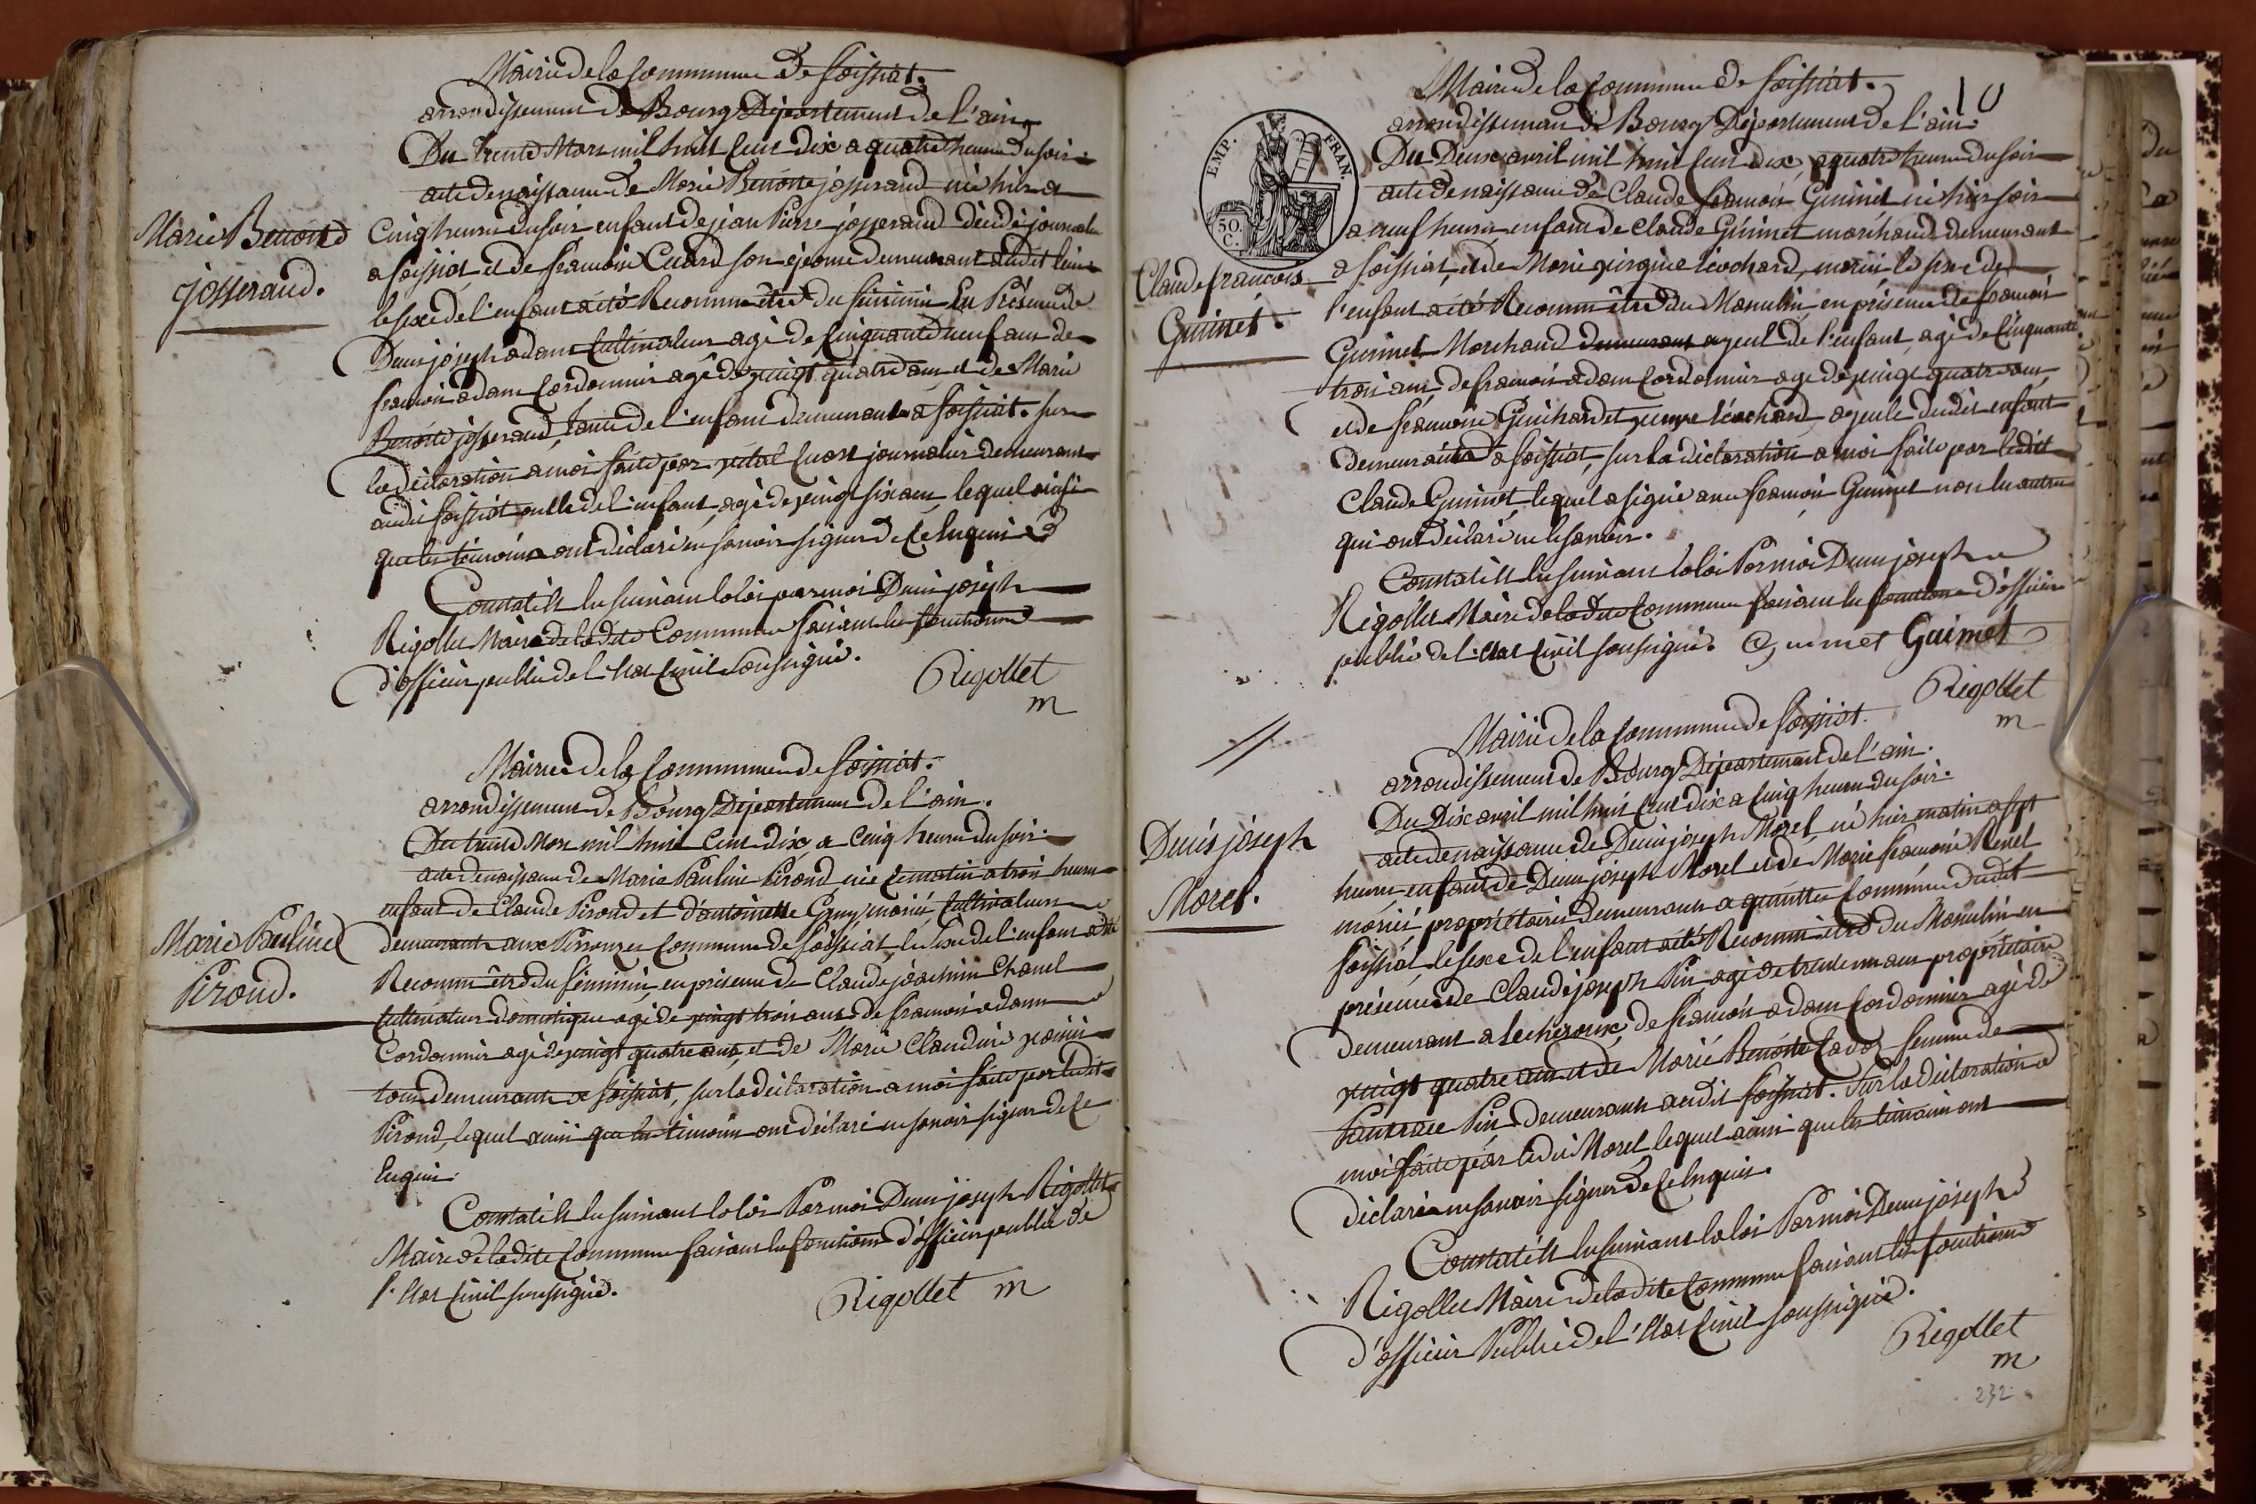 Mairie de la Commune de foissiat.
arrondissement de Bourg Département de l'ain
Du trente Mars mil huit Cent dix a quatre heures du soir
acte de naissance de Marie Benoite josserand née hier a
Marie Benoite
josserand.
Cinq heures du soir enfant de jean Pierre josserand décédé journalier
a foissiat et de francoise Cuard son épouse demeurant audit lieu
le sexe de l'enfant a été Reconnu être du féminin En Présence de
Denis joseph adam Cultivateur agé de Cinquante neuf ans de
francois adam Cordonnier agé de vingt quatre ans et de Marie
Benoite josserand, tante de l'enfant demeurants a foissiat. sur
la déclaration a moi faite par vital Cuart journalier demeurant
audit foissiat oncle de l'enfant, agé de vingt six ans, lequel ainsi
que les témoins ont déclaré ne savoir signer de Ce Enquis
Constaté suivant la loi par moi Denis joseph
Rigollet Maire de la dite Commune faisant les fonctions
d'officier public de l'Etat Civil Soussigné.
Rigollet
m
Mairie de la Commune de foissiat.
arrondissement de Bourg Département de l'ain.
Du trente Mars mil huit Cent dix a Cinq heures du soir.
acte de naissance de Marie Pauline Pirond née Ce matin a trois heures
Marie Pauline
Pirond.
enfant de Claude Pirond et d'antoinette mariés Cultivateurs
demeurants aux Commune de foissiat, le sexe de l'enfant a été
Reconnu être du féminin, en présence de Claude joachim Chanel
Cultivateur domestique agé de vingt trois ans de francois adam
Cordonnier agé de vingt quatre ans, et de Marie Claudine
tous demeurants a foissiat, sur la déclaration a moi faite par ledit
Pirond, lequel ainsi que les témoins ont déclaré ne savoir signer de Ce
Enquis.
Constaté suivant la loi Par moi Denis joseph Rigollet
Maire de la dite Commune faisant les fonctions d'officier public de
l'Etat Civil soussigné.
Rigollet m
10
EMP. FRAN.
50.
C.
Mairie de la Commune de foissiat.
arrondissement de Bourg Département de l'ain.
Du Deux avril mil huit Cent dix, a quatre heures du soir
acte de naissance de Claude francois Guimet né hier soir
Claude francois
Guimet.
a neuf heures enfant de Claude Guimet marchand demeurant
a foissiat, et de Marie virginie Léochard, mariés le sexe de
l'enfant a été Reconnu être du Masculin, en présence de francois
Guimet Marchand demeurant ayeul de l'enfant, agé de Cinquante
trois ans, de francois adam Cordonnier agé de vingt quatre ans
et de francoise Guichard Léochard ayeule dudit enfant
demeurants a foissiat, sur la déclaration a moi faite par ledit
Claude Guimet, lequel a signé avec francois Guimet non les autres
qui ont déclaré ne le savoir.
Constaté suivant la loi Par moi Denis joseph
Rigollet Maire de la dite Commune faisant les fonctions d'officier
public de l'Etat Civil soussigné. Guimet Guimet
Rigollet
m
Mairie de la Commune de foissiat.
arrondissement de Bourg Département de l'ain.
Du Dix avril mil huit Cent dix a Cinq heures du soir.
acte de naissance de Denis joseph Morel, né hier matin a sept
Denis joseph
Morel.
heures, enfant de Denis joseph Morel et de Marie francoise Renel
mariés propriétaires demeurants a Commune dudit
foissiat, le sexe de l'enfant a été Reconnu être du Masculin en
présence de Claude joseph Pin agé de trente propriétaire
demeurant a Lescheroux, de francois adam Cordonnier agé de
vingt quatre ans et de Marie Benoite femme de
Pin demeurants audit foissiat. Sur la déclaration a
moi faite par ledit Morel lequel ainsi que les témoins ont
déclaré ne savoir signer de Ce Enquis.
Constaté suivant la loi Par moi Denis joseph
Rigollet Maire de la dite Commune faisant les fonctions
d'officier Public de l'Etat Civil soussigné.
Rigollet
m
232